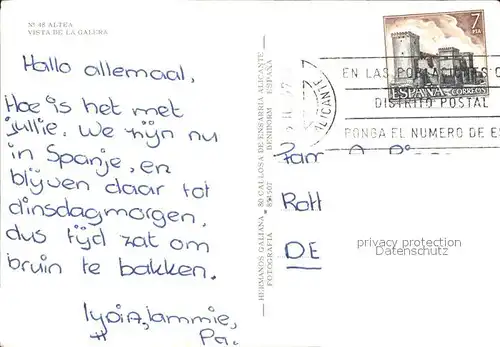 Nº 48 ALTEA
VISTA DE LA GALERA
Hallo allemaal,
Hoe is het met
jullie. We zijn nu
in Spanje, en
blijven daar tot
dinsdagmorgen,
dus tijd zat om
bruin te bakken.
Lydia, Jammie,
Pa.
HERMANOS GALIANA
FOTOGRAFIA
80 CALLOSA DE ENSARRIA ALICANTE
BENIDORM ESPAÑA
7
PTA
ESPAÑA CORREOS
ALICANTE
EN LAS POBLACIONES C
DISTRITO POSTAL
PONGA EL NUMERO DE ES
Fam
Rott
DE
privacy protection
Datenschutz